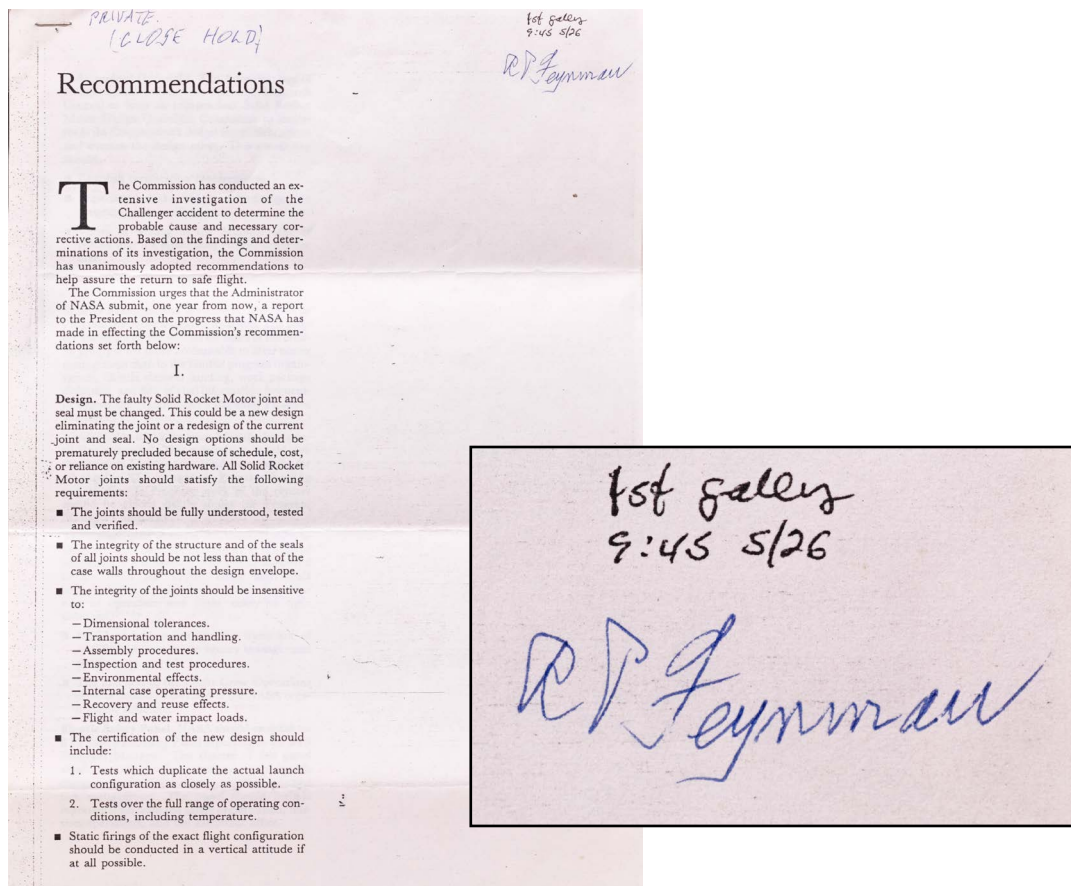 PRIVATE.
(CLOSE HOLD)
1st galley
9:45 5/26
RP Feynman
Recommendations
The Commission has conducted an ex-
tensive investigation of the
Challenger accident to determine the
probable cause and necessary cor-
rective actions. Based on the findings and deter-
minations of its investigation, the Commission
has unanimously adopted recommendations to
help assure the return to safe flight.
The Commission urges that the Administrator
of NASA submit, one year from now, a report
to the President on the progress that NASA has
made in effecting the Commission's recommen-
dations set forth below:
I.
Design. The faulty Solid Rocket Motor joint and
seal must be changed. This could be a new design
eliminating the joint or a redesign of the current
joint and seal. No design options should be
prematurely precluded because of schedule, cost,
or reliance on existing hardware. All Solid Rocket
Motor joints should satisfy the following
requirements:
■ The joints should be fully understood, tested
and verified.
■ The integrity of the structure and of the seals
of all joints should be not less than that of the
case walls throughout the design envelope.
■ The integrity of the joints should be insensitive
to:
—Dimensional tolerances.
—Transportation and handling.
—Assembly procedures.
—Inspection and test procedures.
—Environmental effects.
—Internal case operating pressure.
—Recovery and reuse effects.
—Flight and water impact loads.
■ The certification of the new design should
include:
1. Tests which duplicate the actual launch
configuration as closely as possible.
2. Tests over the full range of operating con-
ditions, including temperature.
■ Static firings of the exact flight configuration
should be conducted in a vertical attitude if
at all possible.
1st galley
9:45 5/26
RP Feynman